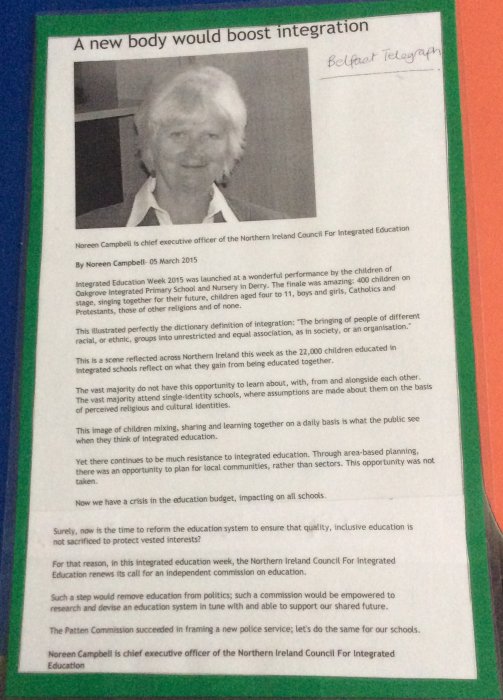 A new body would boost integration
Belfast Telegraph
Noreen Campbell is chief executive officer of the Northern Ireland Council For Integrated Education
By Noreen Campbell- 05 March 2015
Integrated Education Week 2015 was launched at a wonderful performance by the children of
Oakgrove Integrated Primary School and Nursery in Derry. The finale was amazing: 400 children on
stage, singing together for their future, children aged four to 11, boys and girls, Catholics and
Protestants, those of other religions and of none.
This illustrated perfectly the dictionary definition of integration: "The bringing of people of different
racial, or ethnic, groups into unrestricted and equal association, as in society, or an organisation."
This is a scene reflected across Northern Ireland this week as the 22,000 children educated in
integrated schools reflect on what they gain from being educated together.
The vast majority do not have this opportunity to learn about, with, from and alongside each other.
The vast majority attend single-identity schools, where assumptions are made about them on the basis
of perceived religious and cultural identities.
This image of children mixing, sharing and learning together on a daily basis is what the public see
when they think of integrated education.
Yet there continues to be much resistance to integrated education. Through area-based planning,
there was an opportunity to plan for local communities, rather than sectors. This opportunity was not
taken.
Now we have a crisis in the education budget, impacting on all schools.
Surely, now is the time to reform the education system to ensure that quality, inclusive education is
not sacrificed to protect vested interests?
For that reason, in this integrated education week, the Northern Ireland Council For Integrated
Education renews its call for an independent commission on education.
Such a step would remove education from politics; such a commission would be empowered to
research and devise an education system in tune with and able to support our shared future.
The Patten Commission succeeded in framing a new police service; let's do the same for our schools.
Noreen Campbell is chief executive officer of the Northern Ireland Council For Integrated
Education